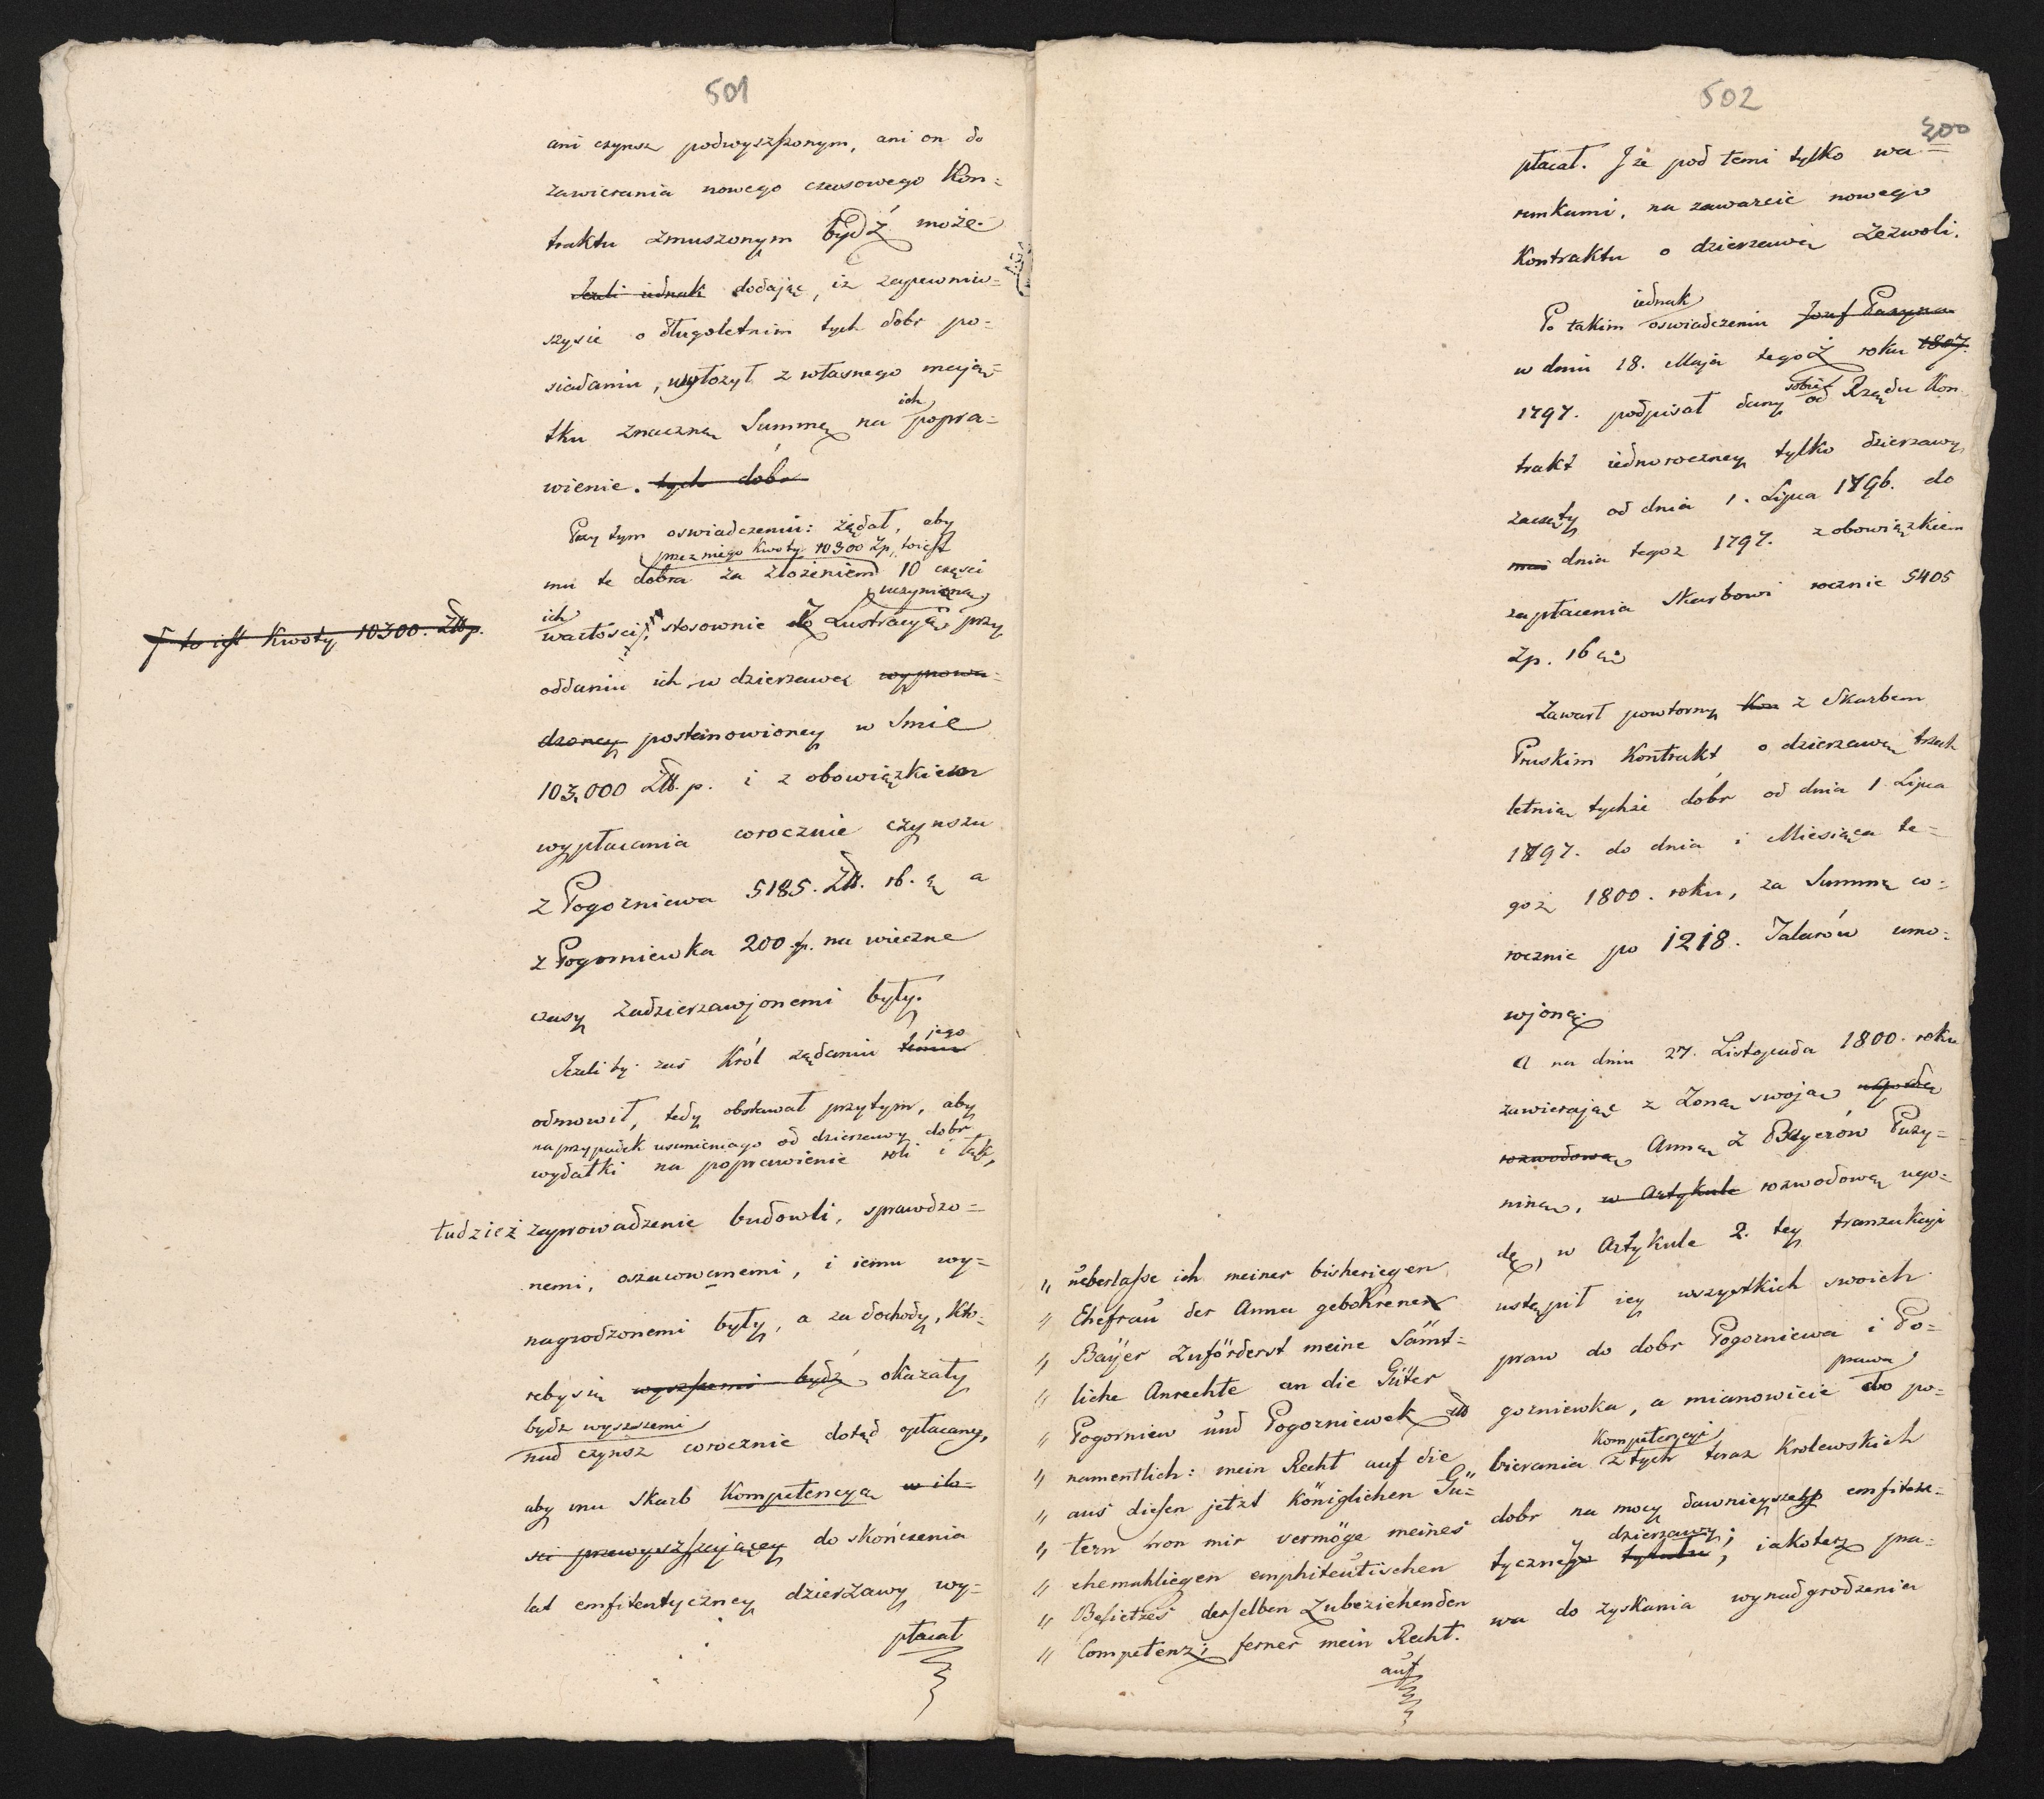 501
ani czynsz podwyszszonym, ani on do
zawierania nowego czasowego Kon=
traktu zmuszonym bydź może.
Jeżeli iednak dodając, iż zapewniw=
szysie o długoletnim tych dobr po=
siadaniu, wyłożył z własnego mają=
ich
tku znaczną Summę na popra=
wienie. tych dóbr
Przy tym oswiadczeniu: żądał, aby
przez niego Kwoty 10300 Zp, toiest
mu te dobra za złożeniem 10 części
uczynioną
ich
wartości, stosownie do Lustracyi, przy
to iest Kwoty 10300. Złłp.
oddaniu ich w dzierzawę wyprowa=
dzoney postanowioney w Smie
103,000 Złł. p. i z obowiązkiem
wypłacania corocznie czynszu
z Pogorzniewa 5185. Złł. 16. a
z Pogorzniewka 200 p. na wieczne
czasy zadzierzawjonemi były.
jego
Jezeliby zaś Król żądaniu temu
odmowił, tedy obstawał przytym, aby
na przypadek usunieniago od dzierzawy dobr
wydatki na poprawienie roli i łąk,
tudzież zaprowadzenie budowli, sprawdzo=
nemi, oszacowanemi, i iemu wy=
nagrodzonemi były, a za dochody, Kto=
rebysię wyszszemi bydź okazały
bydz wyszszemi
nad czynsz corocznie dotąd opłacany,
aby mu Skarb Kompetencyą w ilo=
sci przewyszszającey do skończenia
lat emfiteutyczney dzierzawy wy=
płacał
502
200
płacał. I że pod temi tylko wa=
runkami, na zawarcie nowego
Kontraktu o dzierzawę zezwoli.
iednak
Po takim oswiadczeniu Jozef Puzyna
w dniu 18. Maja tegoż roku 1807.
sobie
1797. podpisał dany od Rządu Kon
trakt iednoroczney tylko dzierzawy
zaczęty od dnia 1. Lipca 1796. do
dnia tegoz 1797. z obowiązkiem
zapłacenia Skarbowi rocznie 5405
Zp. 16
Zawarł powtorny Kon z Skarbem
Pruskim Kontrakt o dzierzawę trzech
letnią tychże dóbr od dnia 1 Lipca
1797. do dnia i Miesiąca te=
goż 1800. roku, za Summę co=
rocznie po 1218. Talarów umo=
wjoną.
A na dniu 27. Listopada 1800. roku
zawierając z Zoną swoją ugodę
rozwodową Anną z Bayerów Puzy=
niną, w Artykule rozwodową ugo=
dę, w Artykule 2. tey tranzakcyi
ustąpił iey wszystkich swoich
praw do dobr Pogorzniewa i Po=
prawa
gorzniewka, a mianowicie do po=
Kompetencyi
bierania z tych teraz Krolewskich
dobr na mocy dawnieyszey emfiteu=
dzierzawy;
tycznego tytułu, iakoteż pra=
wa do zyskania wynadgrodzenia
„ ueberlaße ich meiner bisherigen
„ Ehefrau der Anna gebohrenen
„ Bayer zuförderst meine sämt=
„ liche Anrechte an die Güter
„ Pogorniew und Pogorzniewek
„ namentlich: mein Recht auf die
„ aus diesen jetzt königlichen Gü=
„ tern von mir vermöge meines
„ ehemahliegen emphiteutischen
„ Besietzes derselben zubeziehenden
„ Competenz; ferner mein Recht.
auf